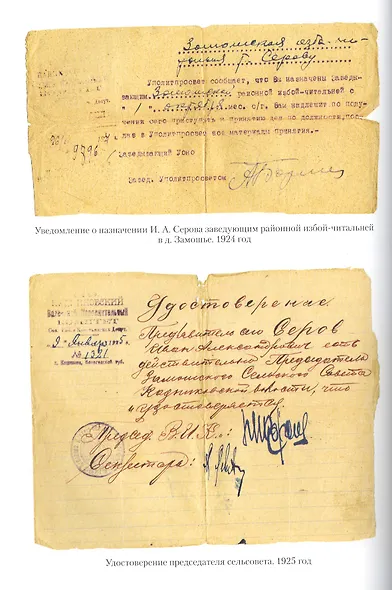 Замошская изба-чи-
тальня т. Серову
Уполитпросвет сообщает, что Вы назначены Заведы-
вающим Замошской районной избой-читальней с
" 1 " октября мес. с/г. Вам надлежит по полу-
чении сего приступить к принятию дел по должности, пос-
лав в Уполитпросвет все материалы принятия.-
Заведывающий Уоно
Завед. Уполитпросветом
Уведомление о назначении И. А. Серова заведующим районной избой-читальней
в д. Замошье. 1924 год
Волостной Исполнительный
КОМИТЕТ
9 " Января 1925 г.
№ 1321
г. Кадников, Вологодской губ.
Удостоверение
Предъявитель сего Серов
Иван Александрович есть
действительно Председатель
Замошского Сельского Совета
Кадниковской волости, что
и удостоверяется
Председ. В.И.К.:
Секретарь:
Удостоверение председателя сельсовета. 1925 год